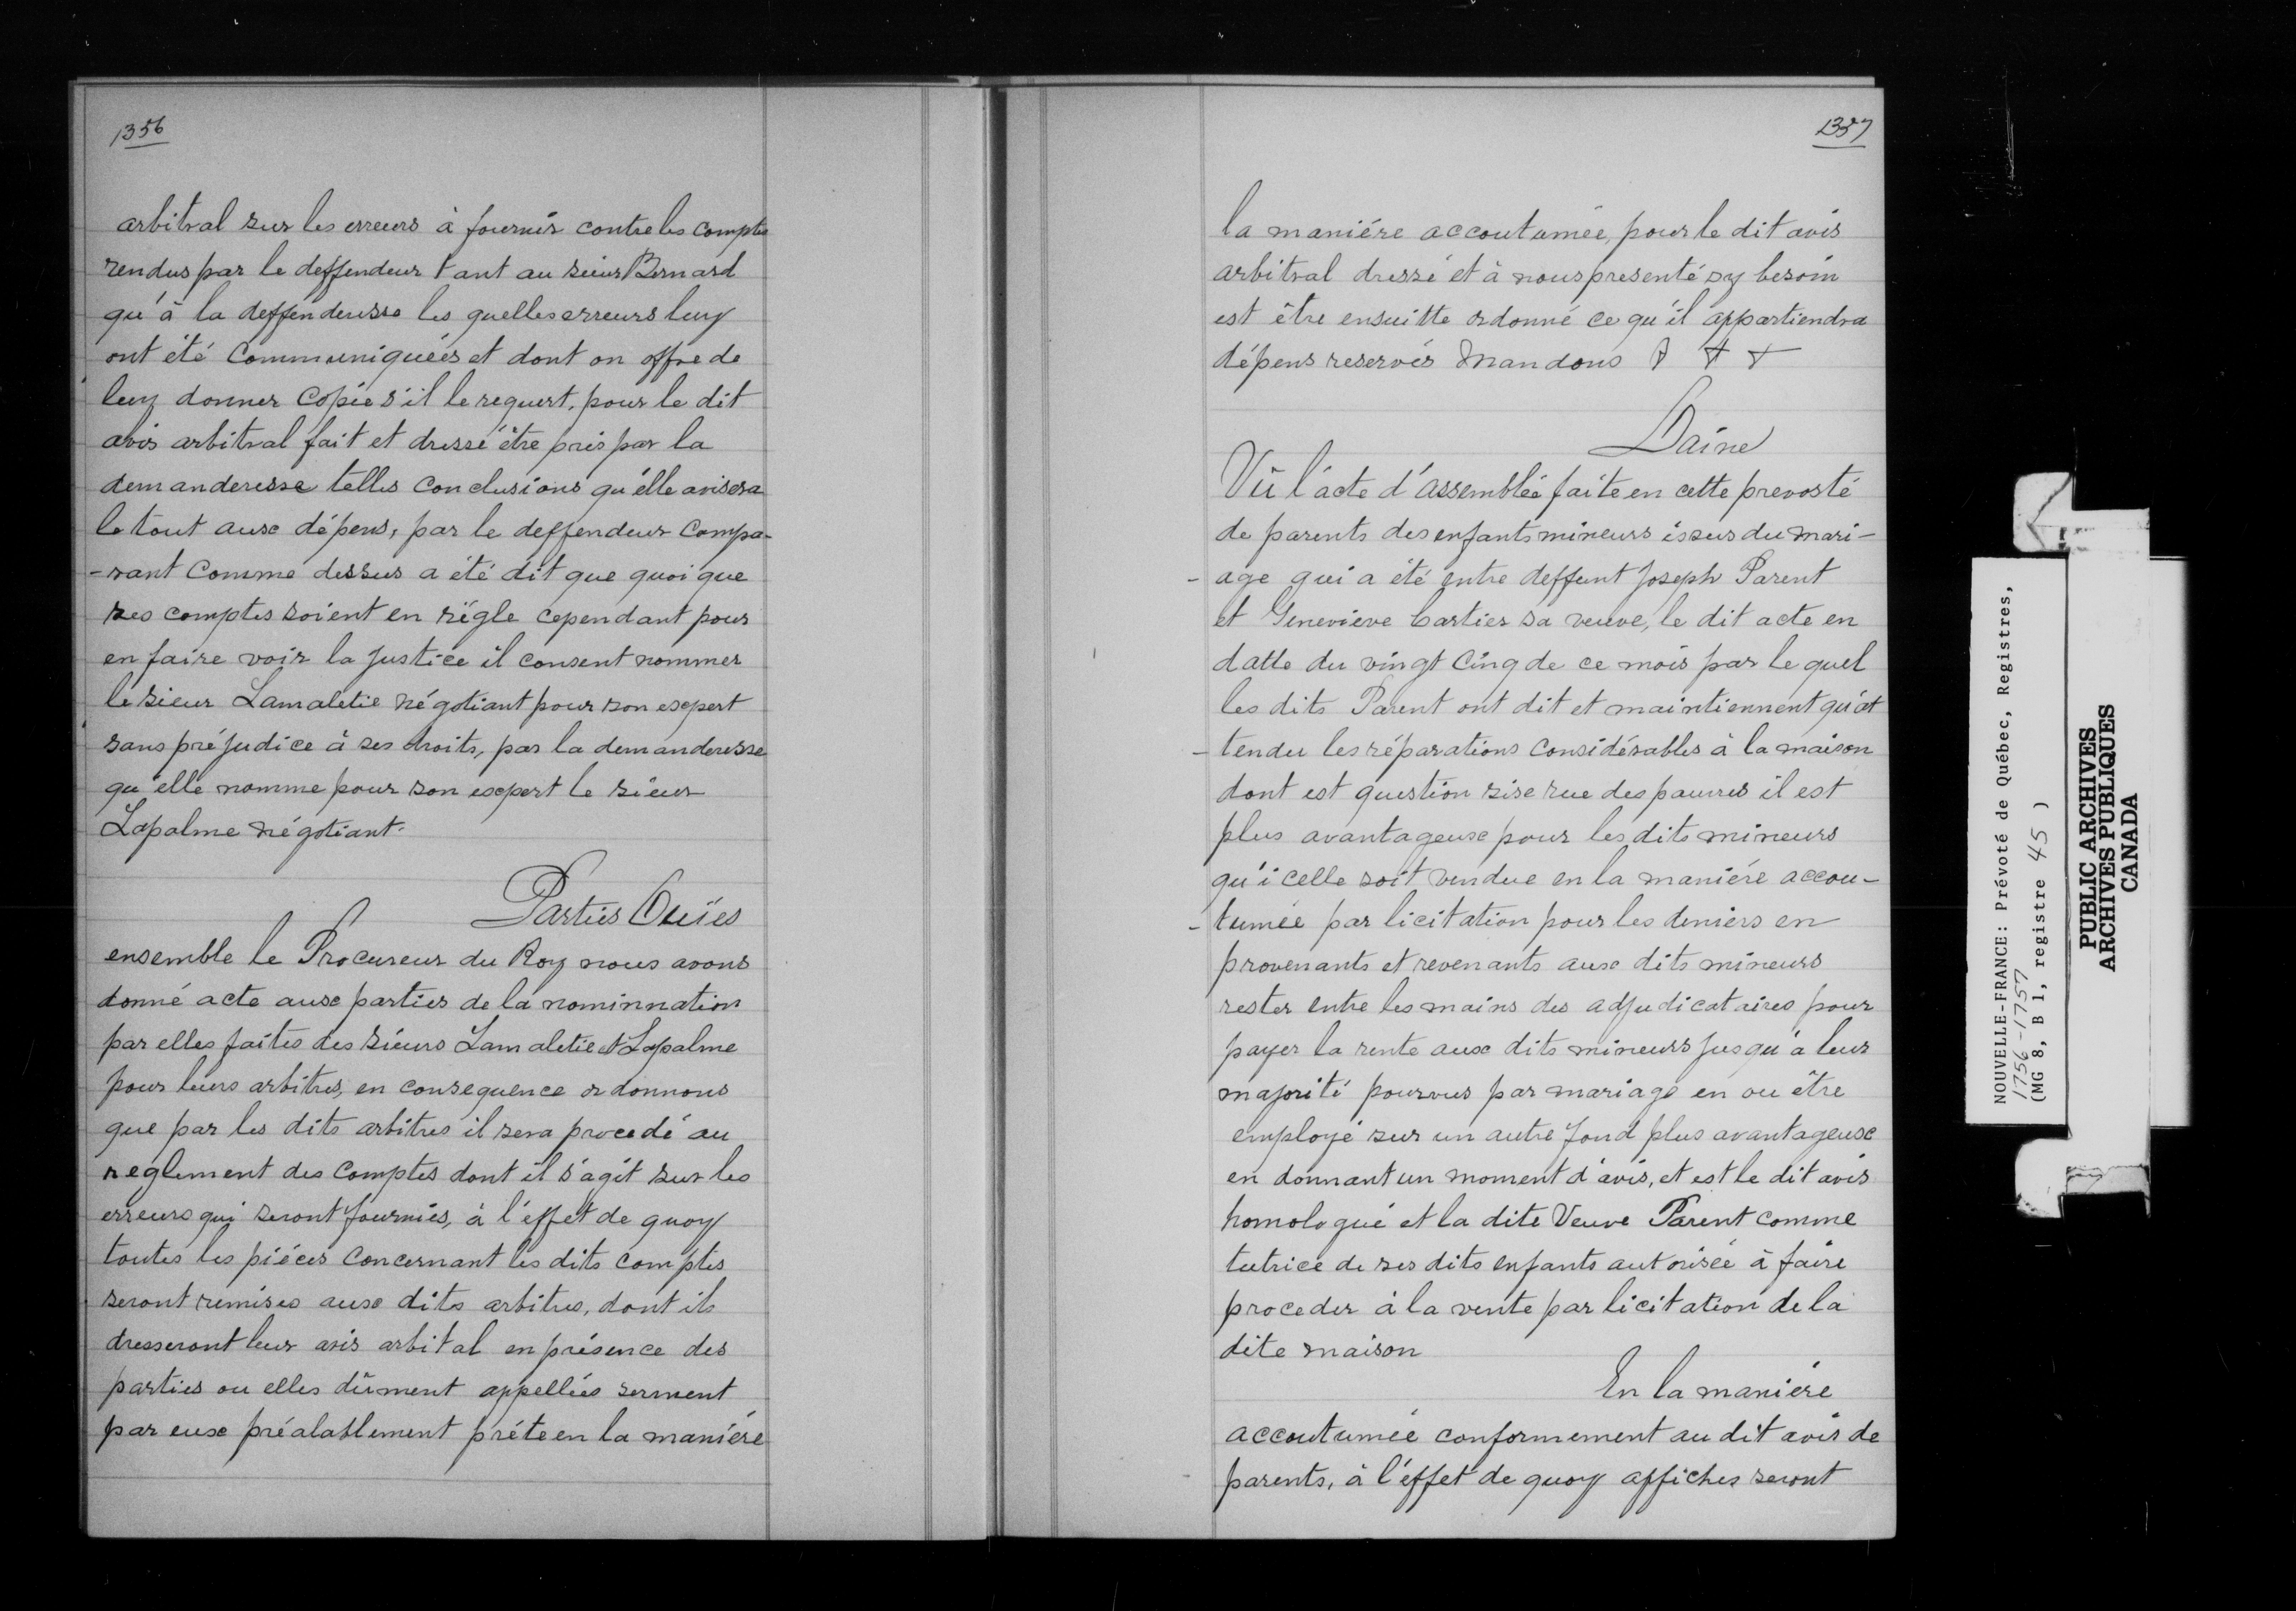 1356
arbitral sur les erreurs à fournir contre les comptes
rendus par le deffendeur tant au sieur Bernard
qu'à la deffenderesse les quelles erreurs luy
ont été communiquées et dont on offre de
luy donner copie s'il le requert, pour le dit
avis arbitral fait et dressé être pris par la
demanderesse telles conclusions qu'elle avisera
le tout aux dépens, par le deffendeur compa-
-rant comme dessus a été dit que quoique
ses comptes soient en règle cependant pour
en faire voir la justice il consent nommer
le sieur Lamaletie négotiant pour son expert
sans préjudice à ses droits, par la demanderesse
qu'elle nomme pour son expert le sieur
Lapalme négotiant.
Parties Ouïes
ensemble le Procureur du Roy nous avons
donné acte aux parties de la nominnation
par elles faites des sieurs Lamaletie et Lapalme
pour leurs arbitres, en consequence ordonnons
que par les dits arbitres il sera procedé au
reglement des comptes dont il s'agit sur les
erreurs qui seront fournies, à l'effet de quoy
toutes les piéces concernant les dits comptes
seront remises aux dits arbitres, dont ils
dresseront leur avis arbital en présence des
parties ou elles dûment appellées serment
par eux préalablement prété en la maniére
1357
la maniére accoutumée, pour le dit avis
arbitral dressé et à nous presenté sy besoin
est être ensuitte ordonné ce qu'il appartiendra
dépens reservés Mandons
Daine
Vû l'acte d'assemblée faite en cette prevosté
de parents des enfants mineurs issus du mari-
-age qui a été entre deffunt Joseph Parent
et Geneviève Cartier sa veuve, le dit acte en
datte du vingt cinq de ce mois par le quel
les dits Parent ont dit et maintiennent qu'at
-tendu les réparations considérables à la maison
dont est question sise rue des pauvres il est
plus avantageux pour les dits mineurs
qu'icelle soit vendue en la maniére accou-
-tumée par licitation pour les deniers en
provenants et revenants aux dits mineurs
rester entre les mains des adjudicataires pour
payer la rente aux dits mineurs jusqu'à leur
majorité pourvus par mariage en ou être
employé sur un autre fond plus avantageux
en donnant un moment d'avis, et est le dit avis
homologué et la dite Veuve Parent comme
tutrice de ses dits enfants autorisée à faire
proceder à la vente par licitation de la
dite maison
En la maniére
accoutumée conformement au dit avis de
parents, à l'effet de quoy affiches seront
NOUVELLE-FRANCE: Prévoté de Québec, Registres,
1756-1757
(MG 8, B 1, registre 45)
PUBLIC ARCHIVES
ARCHIVES PUBLIQUES
CANADA